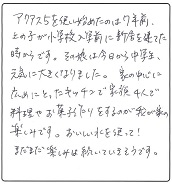 アクアス5を使い始めたのは7年前、
上の子が小学校入学前に新居を建てた
時からです。その娘は今日から中学生、
元気に大きくなりました。家の中心に
広めにとったキッチンで家族4人で
料理やお菓子作りをするのが我が家の
楽しみです。おいしい水を使って!
まだまだ楽しみは続いていきそうです。